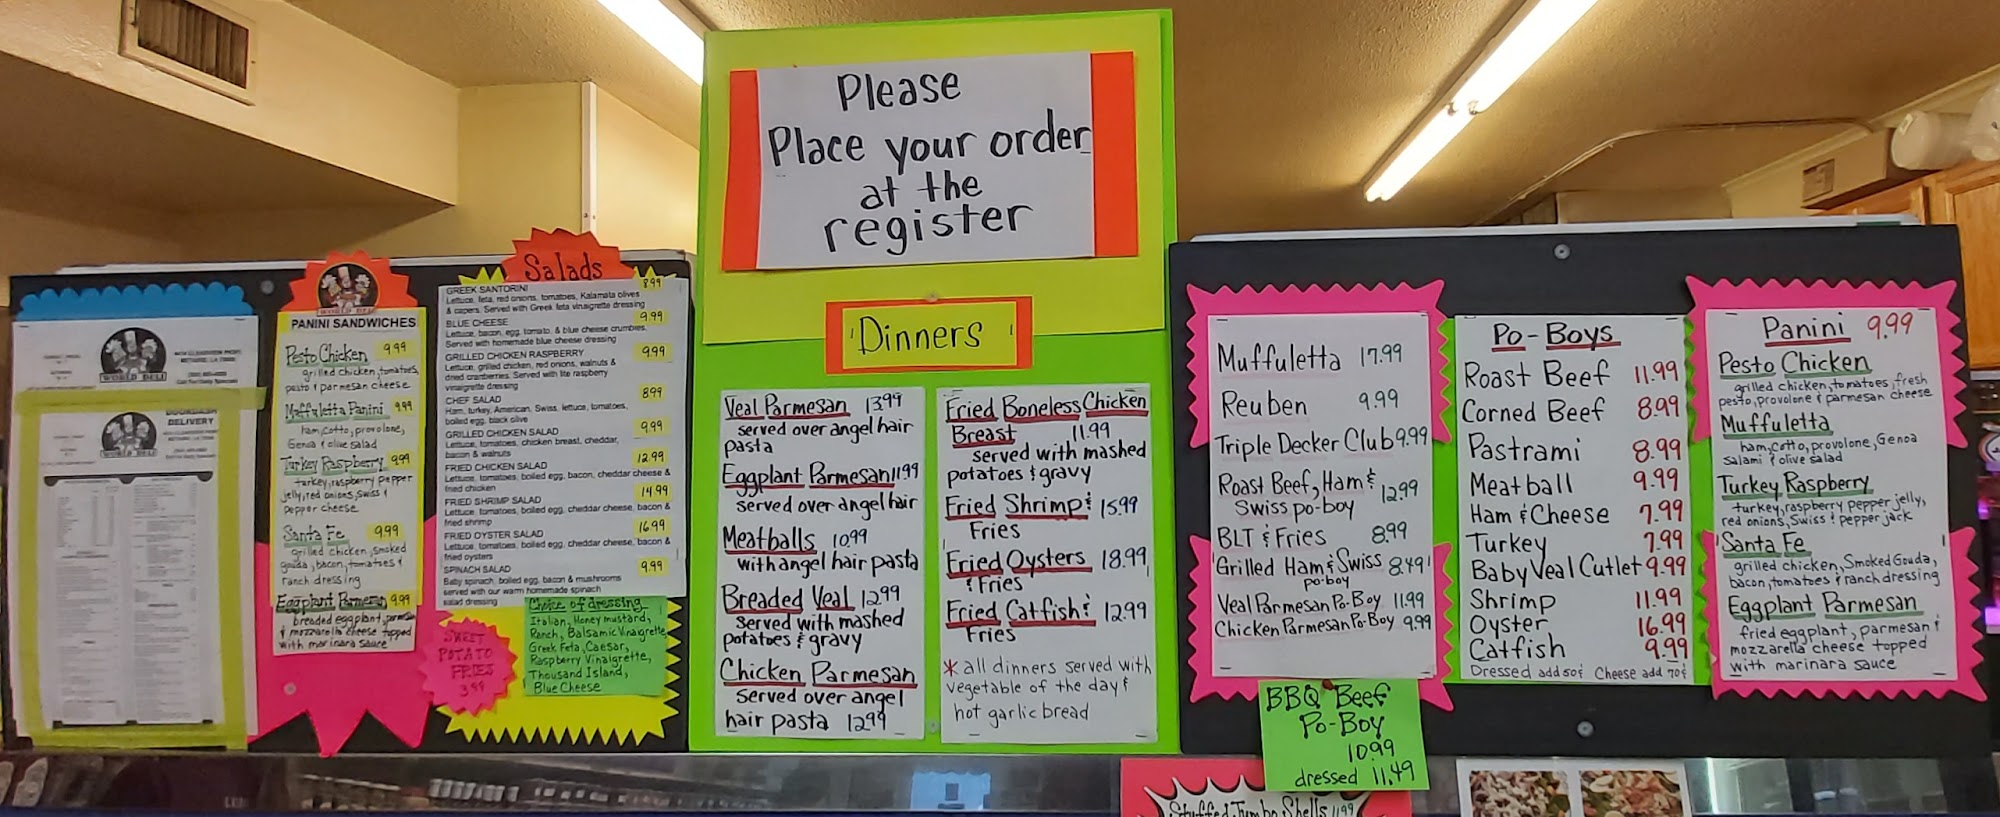 Please
Place your order
at the
register
WORLD DELI
DOORDASH
DELIVERY
WORLD DELI
WORLD DELI
PANINI SANDWICHES
Pesto Chicken 9.99
grilled chicken, tomatoes,
pesto & parmesan cheese
Muffuletta Panini 9.99
ham, cotto, provolone,
Genoa & olive salad
Turkey Raspberry 9.99
turkey, raspberry pepper
jelly, red onions, swiss &
pepper cheese
Santa Fe 9.99
grilled chicken, smoked
gouda, bacon, tomatoes &
ranch dressing
Eggplant Parmesan 9.99
breaded eggplant, parmesan
& mozzarella cheese topped
with marinara sauce
Salads
GREEK SANTORINI 8.99
Lettuce, feta, red onions, tomatoes, Kalamata olives
& capers. Served with Greek feta vinaigrette dressing
BLUE CHEESE 9.99
Lettuce, bacon, egg, tomato, & blue cheese crumbles.
Served with homemade blue cheese dressing
GRILLED CHICKEN RASPBERRY 9.99
Lettuce, grilled chicken, red onions, walnuts &
dried cranberries. Served with lite raspberry
vinaigrette dressing
CHEF SALAD 8.99
Ham, turkey, American, Swiss, lettuce, tomatoes,
boiled egg, black olive
GRILLED CHICKEN SALAD 9.99
Lettuce, tomatoes, chicken breast, cheddar,
bacon & walnuts
FRIED CHICKEN SALAD 12.99
Lettuce, tomatoes, boiled egg, bacon, cheddar cheese &
fried chicken
FRIED SHRIMP SALAD 14.99
Lettuce, tomatoes, boiled egg, cheddar cheese, bacon &
fried shrimp
FRIED OYSTER SALAD 16.99
Lettuce, tomatoes, boiled egg, cheddar cheese, bacon &
fried oysters
SPINACH SALAD 9.99
Baby spinach, boiled egg, bacon & mushrooms
served with our warm homemade spinach
salad dressing
SWEET
POTATO
FRIES
3.99
Choice of dressing
Italian, Honey mustard,
Ranch, Balsamic Vinaigrette
Greek Feta, Caesar,
Raspberry Vinaigrette,
Thousand Island,
Blue Cheese
Dinners
Veal Parmesan 13.99
served over angel hair
pasta
Eggplant Parmesan 11.99
served over angel hair
Meatballs 10.99
with angel hair pasta
Breaded Veal 12.99
served with mashed
potatoes & gravy
Chicken Parmesan
served over angel
hair pasta 12.99
Fried Boneless Chicken
Breast 11.99
served with mashed
potatoes & gravy
Fried Shrimp & 15.99
Fries
Fried Oysters 18.99
& Fries
Fried Catfish & 12.99
Fries
* all dinners served with
vegetable of the day &
hot garlic bread
Muffuletta 17.99
Reuben 9.99
Triple Decker Club 9.99
Roast Beef, Ham & 12.99
Swiss po-boy
BLT & Fries 8.99
Grilled Ham & Swiss 8.49
po-boy
Veal Parmesan Po-Boy 11.99
Chicken Parmesan Po-Boy 9.99
BBQ Beef
Po-Boy
10.99
dressed 11.49
Stuffed Jumbo Shells 11.99
Po-Boys
Roast Beef 11.99
Corned Beef 8.99
Pastrami 8.99
Meatball 9.99
Ham & Cheese 7.99
Turkey 7.99
Baby Veal Cutlet 9.99
Shrimp 11.99
Oyster 16.99
Catfish 9.99
Dressed add 50¢ Cheese add 70¢
Panini 9.99
Pesto Chicken
grilled chicken, tomatoes, fresh
pesto, provolone & parmesan cheese
Muffuletta
ham, cotto, provolone, Genoa
salami & olive salad
Turkey Raspberry
turkey, raspberry pepper jelly,
red onions, Swiss & pepper jack
Santa Fe
grilled chicken, Smoked Gouda,
bacon, tomatoes & ranch dressing
Eggplant Parmesan
fried eggplant, parmesan &
mozzarella cheese topped
with marinara sauce